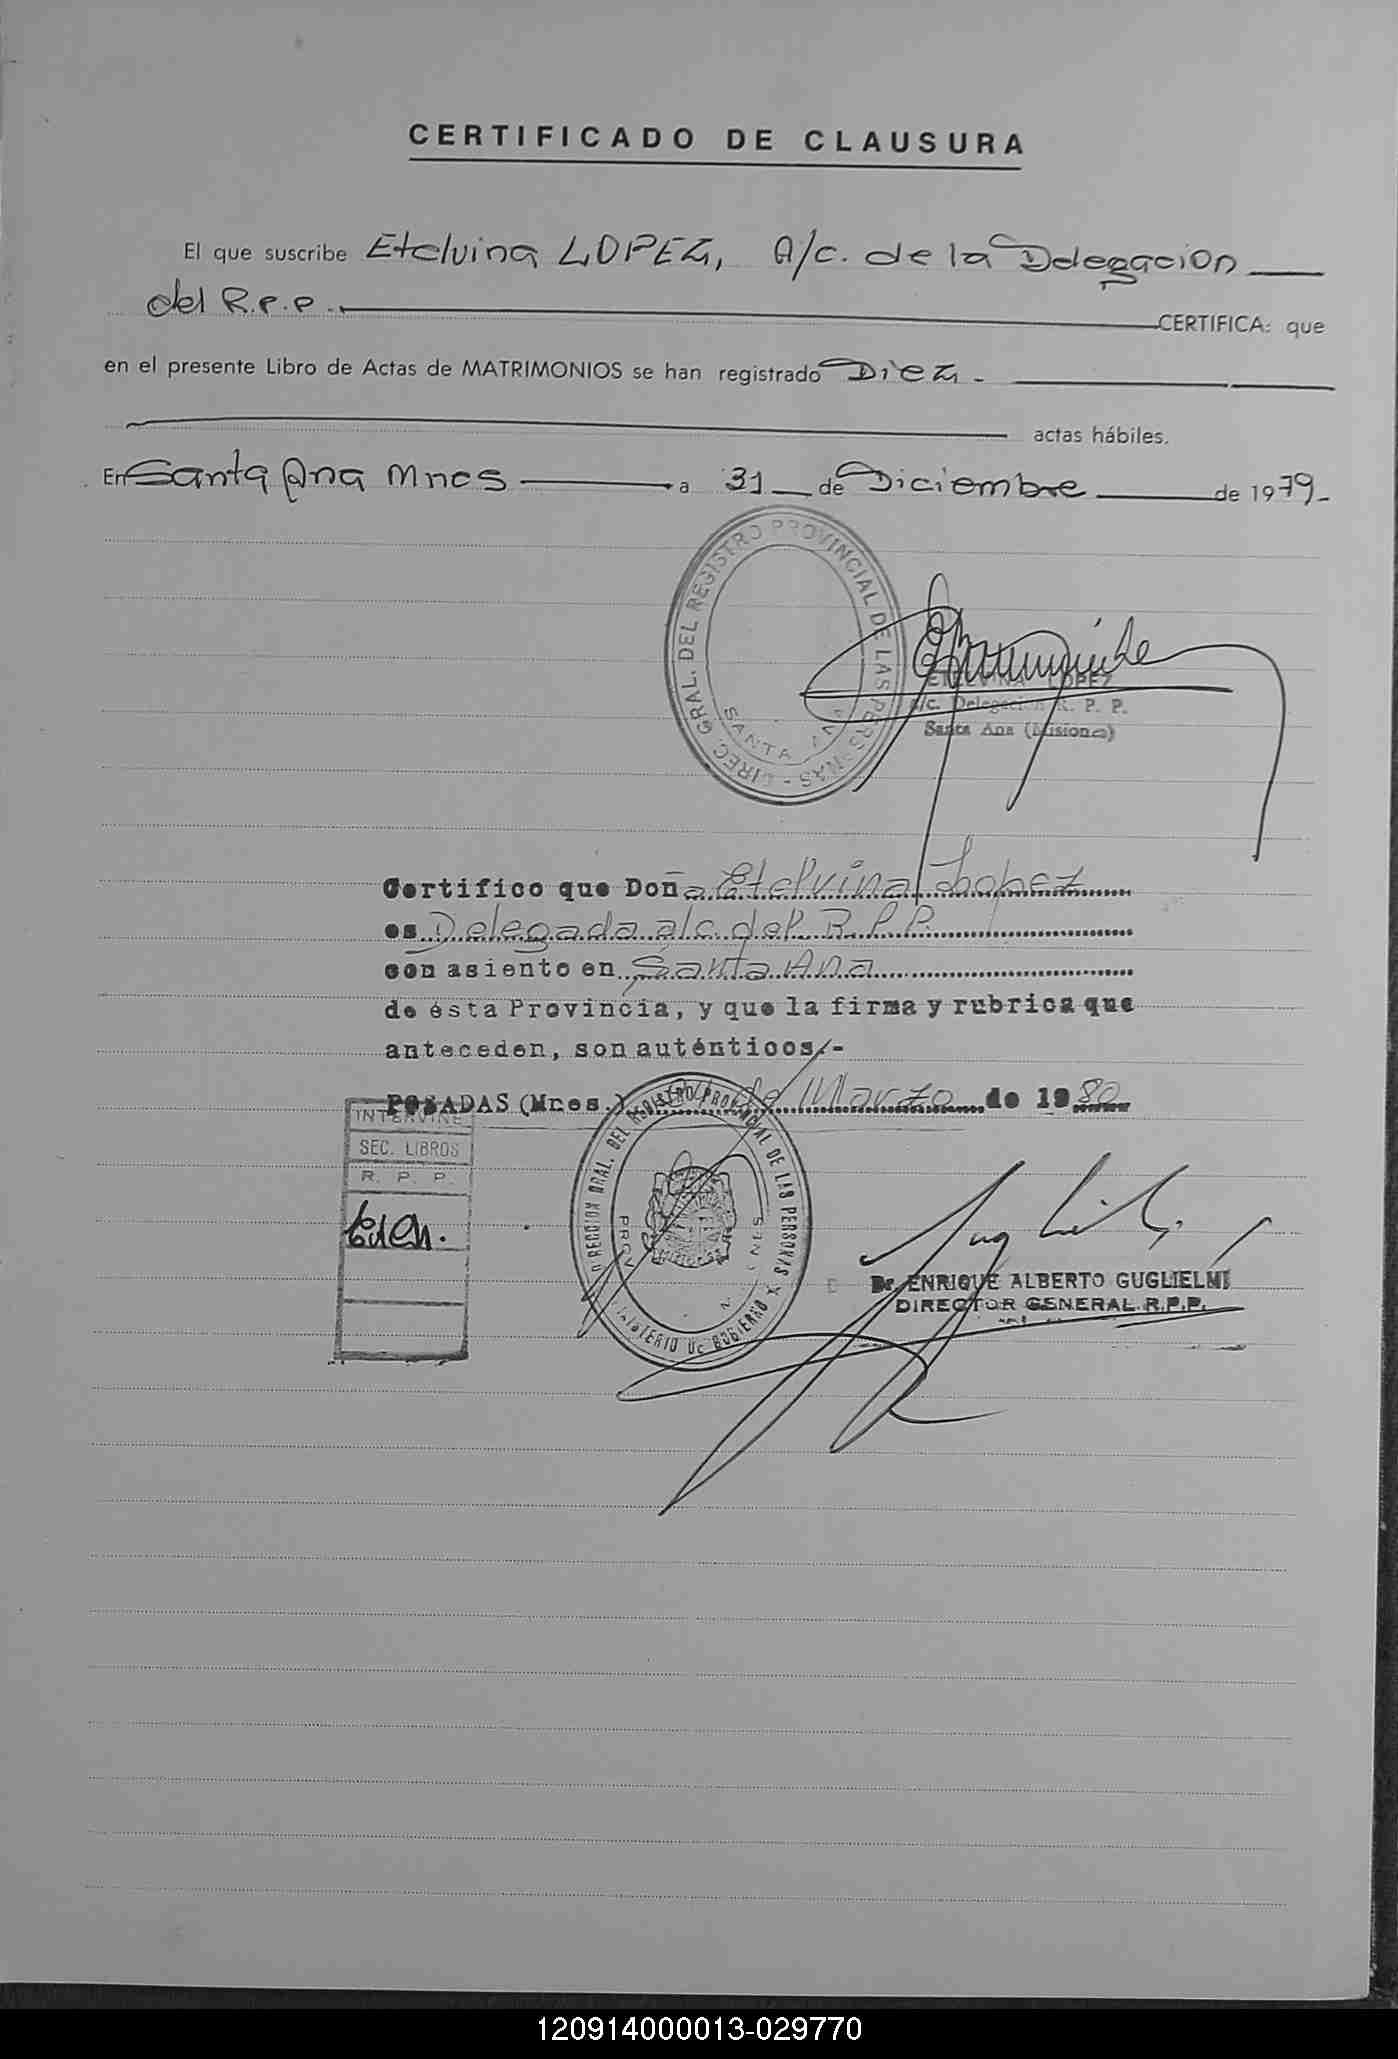 CERTIFICADO DE CLAUSURA
El que suscribe Etelvina LOPEZ, A/c. de la Delegacion
del R.P.P. CERTIFICA: que
en el presente Libro de Actas de MATRIMONIOS se han registrado Diez.-
actas hábiles.
En Santa Ana Mnes a 31 de Diciembre de 1979-
DIREC. GRAL. DEL REGISTRO PROVINCIAL DE LAS PERSONAS -
SANTA ANA
ETELVINA LOPEZ
A/c. Delegación R. P. P.
Santa Ana (Misiones)
Certifico que Doña Etelvina Lopez
es Delegada a/c. del R.P.P.
con asiento en Santa Ana
de ésta Provincia, y que la firma y rubrica que
anteceden, son auténticos.-
POSADAS (Mnes.) de Marzo de 1980
INTERVINE
SEC. LIBROS
R. P. P.
DIRECCION GRAL. DEL REGISTRO PROVINCIAL DE LAS PERSONAS
MINISTERIO DE GOBIERNO
Dr. ENRIQUE ALBERTO GUGLIELMI
DIRECTOR GENERAL R.P.P.
120914000013-029770